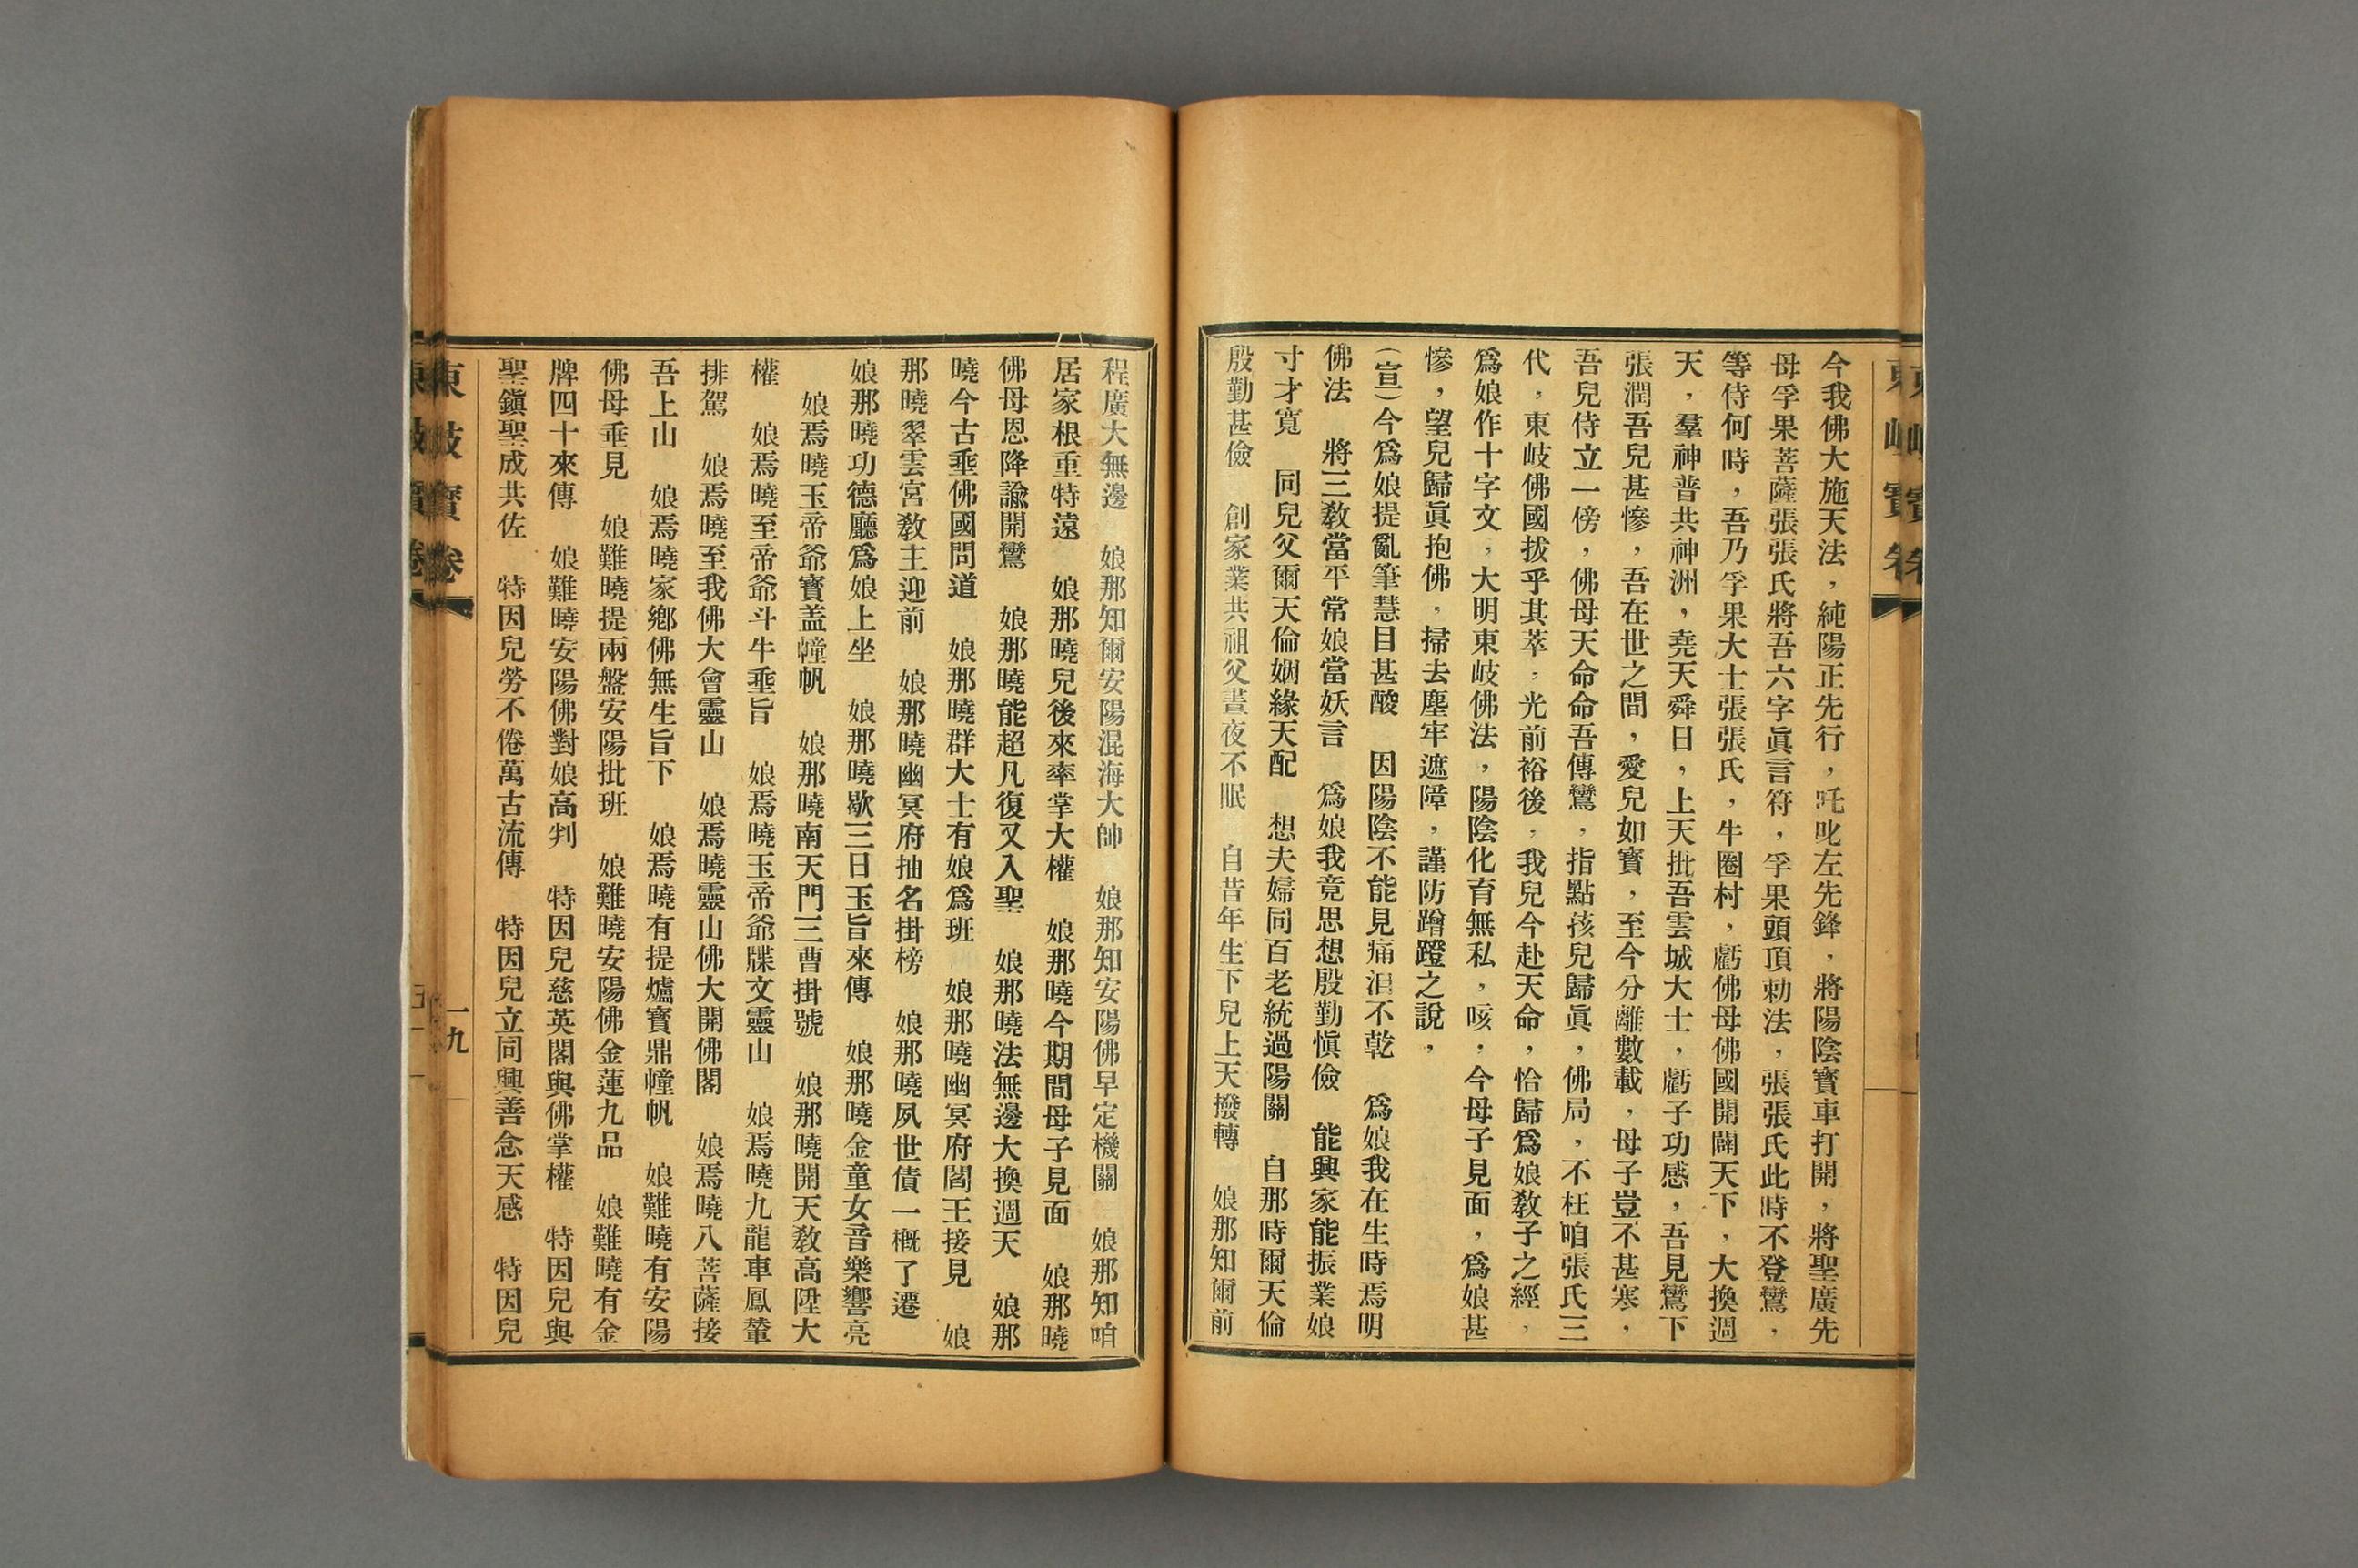 東岐寶卷
今我佛大施天法，純陽正先行，吒叱左先鋒，將陽陰寶車打開，將聖廣先
母孚果菩薩張張氏將吾六字眞言符，孚果頭頂勅法，張張氏此時不登鸞，
等侍何時，吾乃孚果大士張張氏，牛圈村，虧佛母佛國開闢天下，大換週
天，羣神普共神洲，堯天舜日，上天批吾雲城大士，虧子功感，吾見鸞下
張潤吾兒甚慘，吾在世之間，愛兒如寶，至今分離數載，母子豈不甚寒，
吾兒侍立一傍，佛母天命命吾傳鸞，指點孩兒歸眞，佛局，不枉咱張氏三
代，東岐佛國拔乎其萃，光前裕後，我兒今赴天命，恰歸爲娘敎子之經，
爲娘作十字文，大明東岐佛法，陽陰化育無私，咳，今母子見面，爲娘甚
慘，望兒歸眞抱佛，掃去塵牢遮障，謹防蹭蹬之說，
（宣）今爲娘提亂筆慧目甚酸　因陽陰不能見痛泪不乾　爲娘我在生時焉明
佛法　將三敎當平常娘當妖言　爲娘我竟思想殷勤愼儉　能興家能振業娘
寸才寬　同兒父爾天倫姻緣天配　想夫婦同百老統過陽關　自那時爾天倫
殷勤甚儉　創家業共祖父晝夜不眠　自昔年生下兒上天撥轉　娘那知爾前
程廣大無邊　娘那知爾安陽混海大帥　娘那知安陽佛早定機關　娘那知咱
居家根重特遠　娘那曉兒後來率掌大權　娘那曉今期間母子見面　娘那曉
佛母恩降諭開鸞　娘那曉能超凡復又入聖　娘那曉法無邊大換週天　娘那
曉今古垂佛國問道　娘那曉群大士有娘爲班　娘那曉幽冥府閻王接見　娘
那曉翠雲宮敎主迎前　娘那曉幽冥府抽名掛榜　娘那曉夙世債一概了遷
娘那曉功德廳爲娘上坐　娘那曉歇三日玉旨來傳　娘那曉金童女音樂響亮
娘焉曉玉帝爺寶盖幢帆　娘那曉南天門三曹掛號　娘那曉開天敎高陞大
權　娘焉曉至帝爺斗牛垂旨　娘焉曉玉帝爺牒文靈山　娘焉曉九龍車鳳輦
排駕　娘焉曉至我佛大會靈山　娘焉曉靈山佛大開佛閣　娘焉曉八菩薩接
吾上山　娘焉曉家鄕佛無生旨下　娘焉曉有提爐寶鼎幢帆　娘難曉有安陽
佛母垂見　娘難曉提兩盤安陽批班　娘難曉安陽佛金蓮九品　娘難曉有金
牌四十來傳　娘難曉安陽佛對娘高判　特因兒慈英閣與佛掌權　特因兒與
聖鎭聖成共佐　特因兒勞不倦萬古流傳　特因兒立同興善念天感　特因兒
東岐寶卷
一九